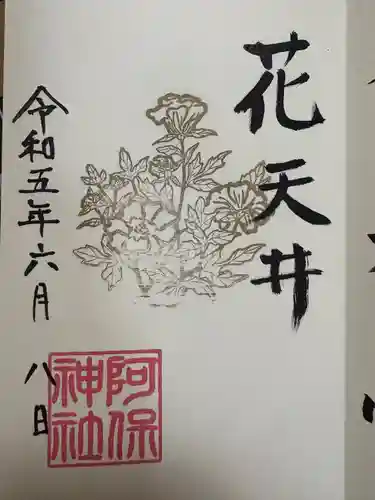 花天井
令和五年六月八日
阿保神社